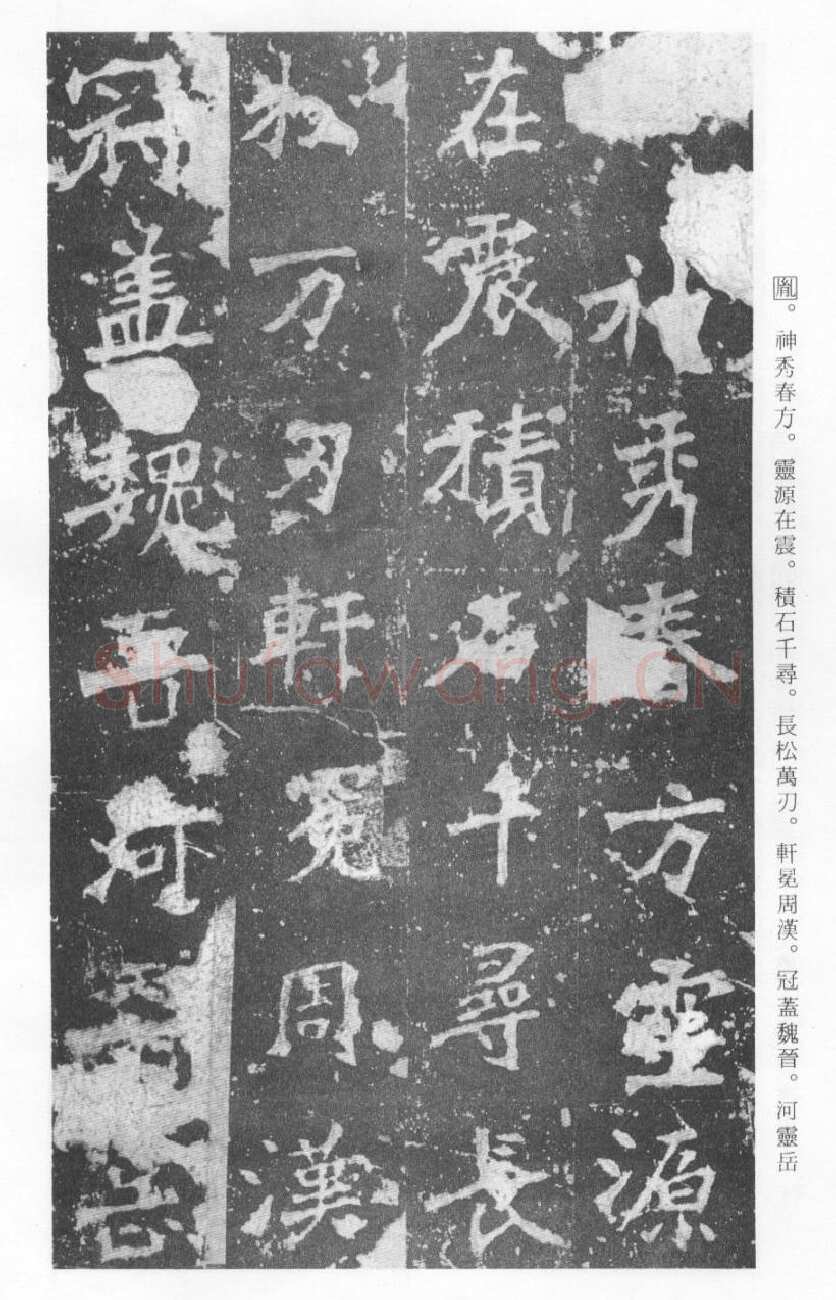 胤。神秀春方。靈源在震。積石千尋。長松萬刃。軒冕周漢。冠蓋魏晉。河靈岳
神秀春方靈源
在震積石千尋長
松万刃軒冕周漢
冠盖魏晉河靈岳
Shufawang.CN